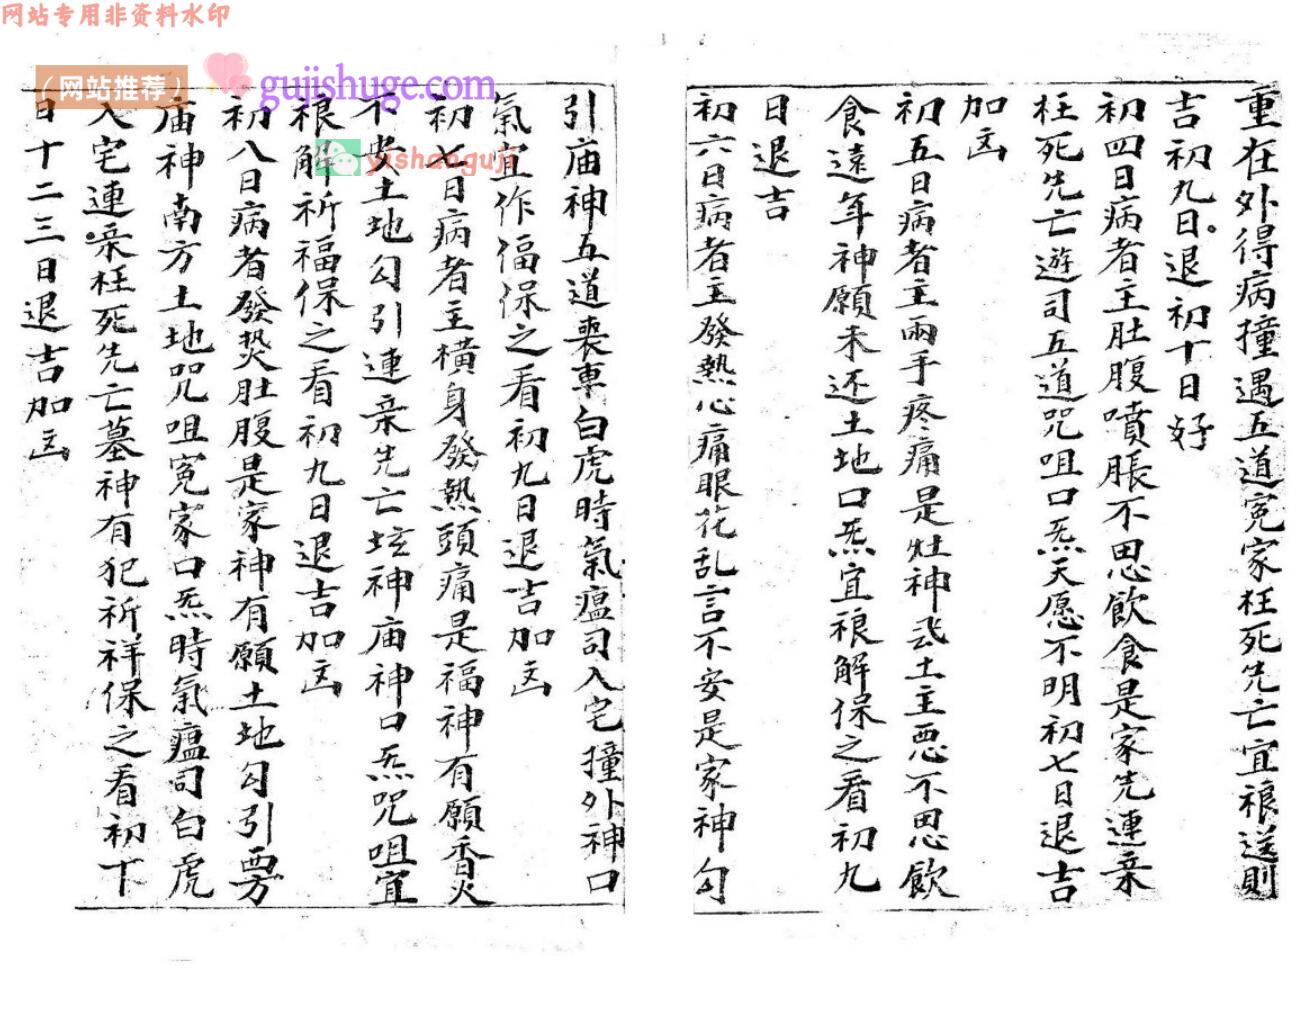 网站专用非资料水印
（网站推荐）
gujishuge.com
yishanguji
重在外得病撞遇五道冤家枉死先亡宜禳送則
吉初九日退初十日好
初四日病者主肚腹噴脹不思飲食是家先連亲
枉死先亡遊司五道咒咀口炁天愿不明初七日退吉
加凶
初五日病者主兩手疼痛是灶神司土主惡不思飲
食遠年神願未还土地口炁宜禳解保之看初九
日退吉
初六日病者主發熱心痛眼花乱言不安是家神勾
引庙神五道喪車白虎時氣瘟司入宅撞外神口
氣宜作福保之看初九日退吉加凶
初七日病者主橫身發熱頭痛是福神有願香火
不安土地勾引連亲先亡坟神庙神口炁咒咀宜
禳解祈福保之看初九日退吉加凶
初八日病者發熱肚腹是家神有願土地勾引西方
庙神南方土地咒咀冤家口炁時氣瘟司白虎
入宅連亲枉死先亡墓神有犯祈祥保之看初十
日十二三日退吉加凶